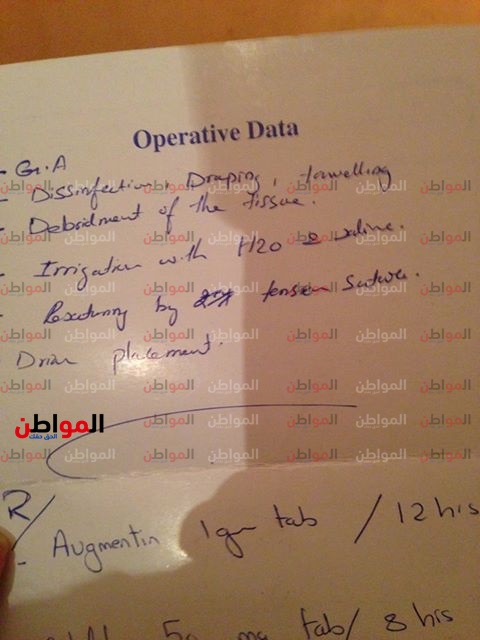 Operative Data
- G.A
- Dissinfection, Draping, towelling
- Debridment of the tissue.
- Irrigation with H2O saline.
- by tension suture.
- Drain placement.
المواطن
الحق حقك
R/
- Augmentin 1gm tab / 12 hrs
50 mg tab/ 8 hrs